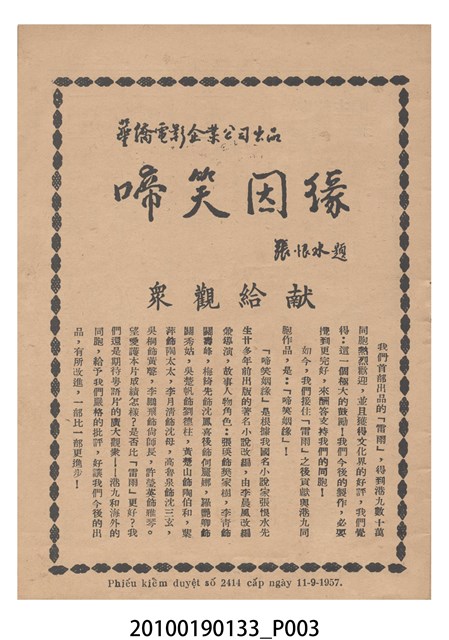 華僑電影企業公司出品
啼笑因緣
張恨水題
献給觀衆
我們首部出品的「雷雨」，得到港九數十萬
同胞熱烈歡迎，並且獲得文化界的好評，我們覺
得：這一個極大的鼓勵！我們今後的製作，必要
攪到更完好，來酬答支持我們的同胞！
如今，我們接住「雷雨」之後貢獻與港九同
胞作品，是：「啼笑姻緣」！
「啼笑姻緣」是根據我國名小說家張恨水先
生廿多年前出版的著名小說改編，由李晨風改編
兼導演，故事人物角色：張瑛飾樊家樹，李清飾
關壽峰，梅綺先飾沈鳳喜後飾何麗娜，羅艷卿飾
關秀姑，吳楚帆飾劉德柱，黃楚山飾陶伯和，紫
萍飾陶太太，李月清飾沈母，高魯泉飾沈三玄，
吳桐飾黃鶴，李鵬飛飾尚師長，許瑩英飾雅琴。
望愛護本片成績怎樣？是否比「雷雨」更好？我
們還是期待粵語片的廣大觀衆——港九和海外的
同胞，給予我們嚴格的批評，好讓我們今後的出
品，有所改進，一部比一部更進步！
Phiếu kiểm duyệt số 2414 cấp ngày 11-9-1957.
20100190133_P003